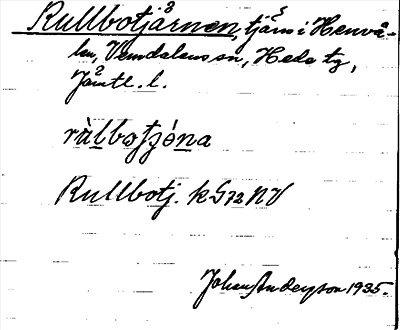 Rullbotjärnen, tjärn i Henvå-
len, Vemdalens sn, Hede tg,
Jämtl. l.
ràlbotjóna
Rullbotj. k G 72 NV
Johan Anderson 1935.